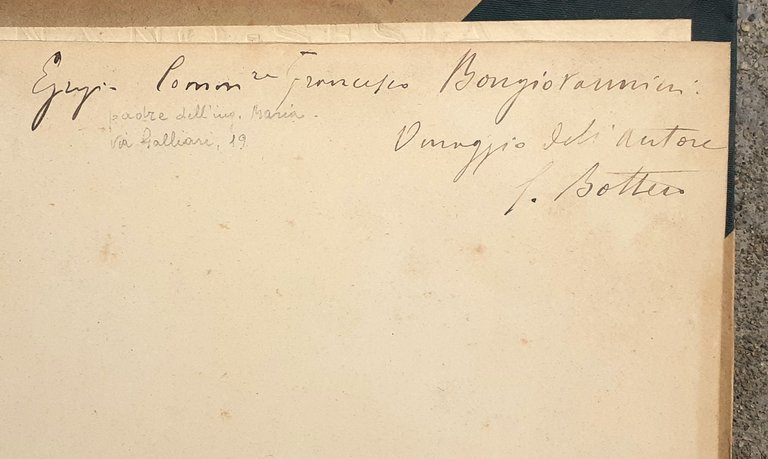 Egregio Comm.re Francesco Bongiovannini
padre dell'ing. Maria.
Via Galliari, 19
Omaggio dell'autore
G. Bottero